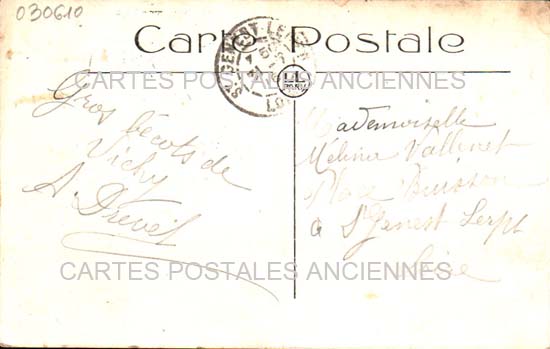 030610
Carte Postale
LL
PARIS
CARTES POSTALES ANCIENNES
Gros bécots de
Vichy
A. Drevet
Mademoiselle
Mélina Vallinet
Place Buisson
à St Genest Lerpt
Loire
CARTES POSTALES ANCIENNES